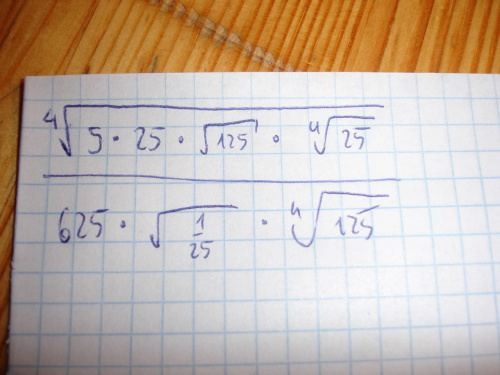 ⁴√(5 · 25 · √125 · ⁴√25)
625 · √(1/25) · ⁴√125